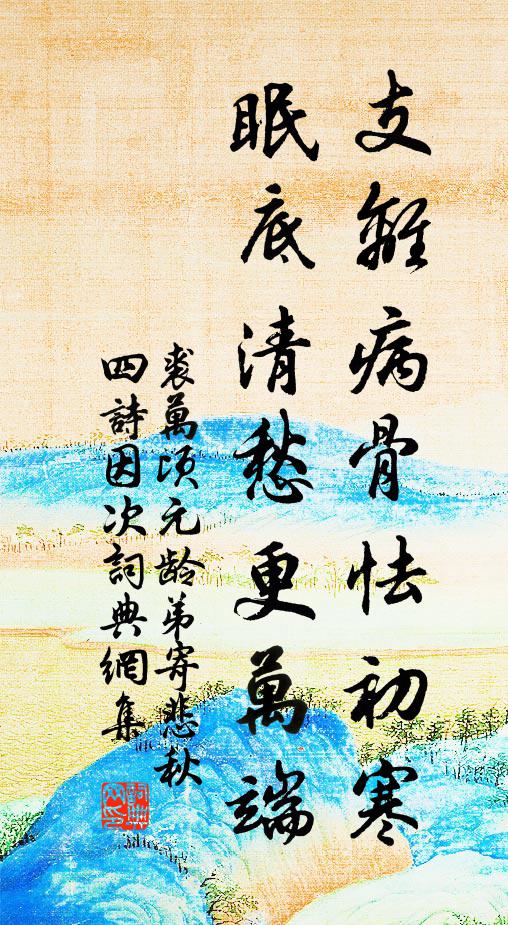 支離病骨怯初寒
眠底清愁更萬端
裘萬頃元龄弟寄悲秋
四詩因次詞典網集